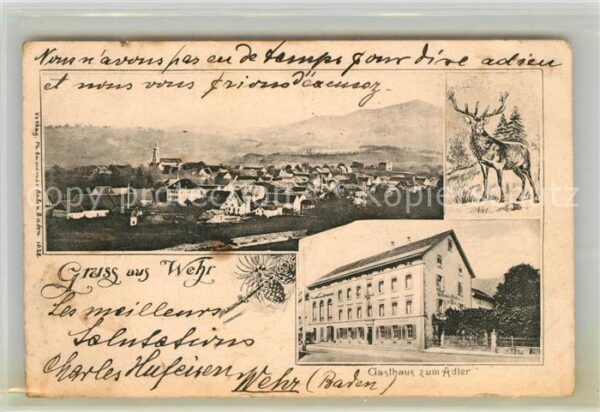 Nous n'avons pas eu de temps pour dire adieu
et nous vous prions d'excusez.
Gruss aus Wehr
Les meilleurs
Salutations
Charles Hufeisen Wehr (Baden)
Gasthaus zum Adler